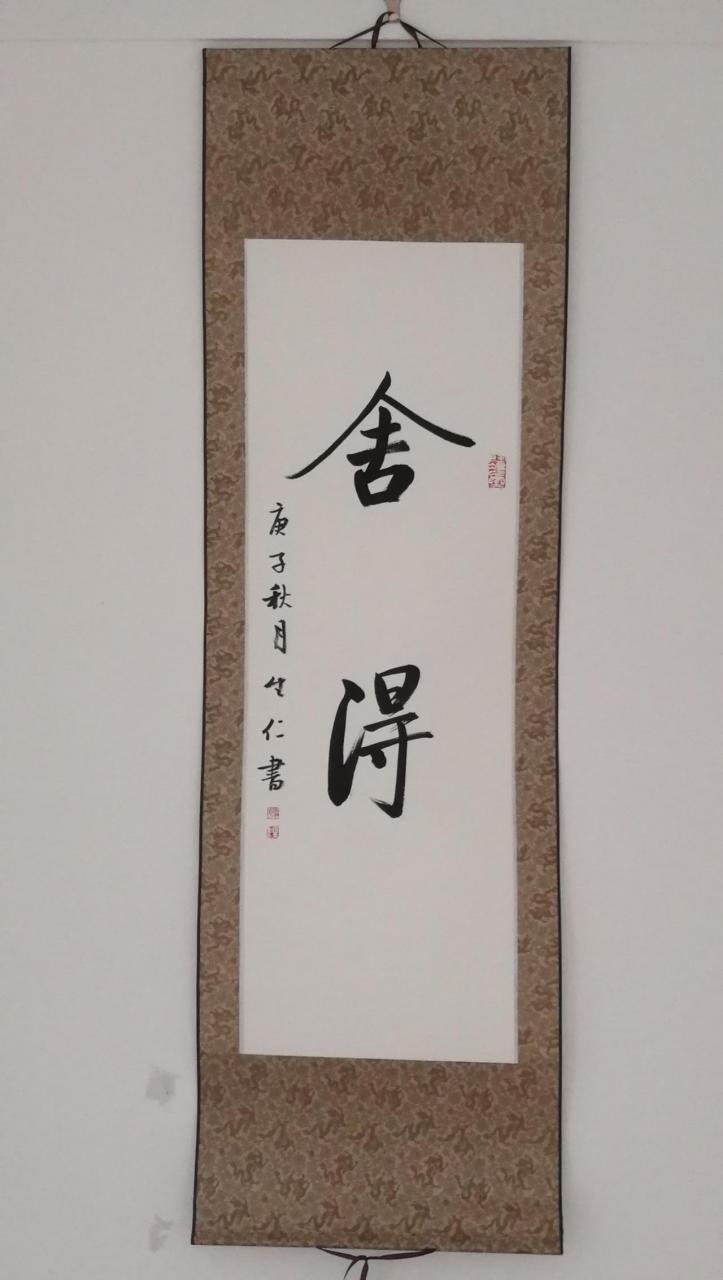 舍得
庚子秋月生仁書